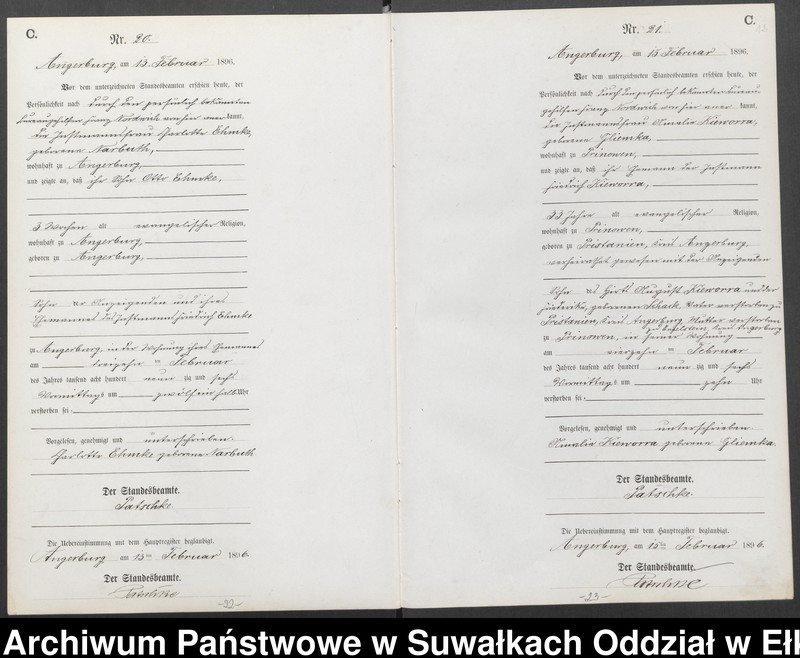 C.
Nr. 20.
Angerburg, am 13. Februar 1896.
Vor dem unterzeichneten Standesbeamten erschien heute, der
Persönlichkeit nach durch den persönlich bekannten
Bureaugehilfen Franz Nordwich von hier aner kannt,
die Instmannsfrau Charlotte Ehmke,
geborene Narbuth,
wohnhaft zu Angerburg,
und zeigte an, daß ihr Sohn Otto Ehmke,
3 Wochen alt evangelischer Religion,
wohnhaft zu Angerburg,
geboren zu Angerburg,
Sohn der Anzeigenden und ihres
Ehemannes des Instmanns Friedrich Ehmke
zu Angerburg, in der Wohnung ihres Ehemannes
am dreizehn ten Februar
des Jahres tausend acht hundert neun zig und sechs
Vormittags um zwölf ein halb Uhr
verstorben sei.
Vorgelesen, genehmigt und unterschrieben.
Charlotte Ehmke geborene Narbuth
Der Standesbeamte.
Patschke.
Die Uebereinstimmung mit dem Hauptregister beglaubigt.
Angerburg am 13ten Februar 1896.
Der Standesbeamte.
-22-
C.
Nr. 21.
Angerburg, am 15. Februar 1896.
Vor dem unterzeichneten Standesbeamten erschien heute, der
Persönlichkeit nach durch den persönlich bekannten Bureau
gehilfen Franz Nordwich von hier aner kannt,
die Instmannsfrau Amalie Kieworra,
geborene Gliemka,
wohnhaft zu Prinowen,
und zeigte an, daß ihr Ehemann der Instmann
Friedrich Kieworra,
Jahre alt evangelischer Religion,
wohnhaft zu Prinowen,
geboren zu Pristanien, Kreis Angerburg
verheirathet gewesen mit der Anzeigenden
Sohn des Hirt August Kieworra und der
Friederike, geborenen Schack, Vater verstorben zu
Pristanien, Kreis Angerburg, Mutter verstorben
Kreis Angerburg
zu Prinowen, in seiner Wohnung
am vierzehn ten Februar
des Jahres tausend acht hundert neun zig und sechs
Vormittags um zehn Uhr
verstorben sei.
Vorgelesen, genehmigt und unterschrieben.
Amalie Kieworra geborene Gliemka.
Der Standesbeamte.
Patschke.
Die Uebereinstimmung mit dem Hauptregister beglaubigt.
Angerburg, am 15ten Februar 1896.
Der Standesbeamte.
-23-
Archiwum Państwowe w Suwałkach Oddział w Ełk